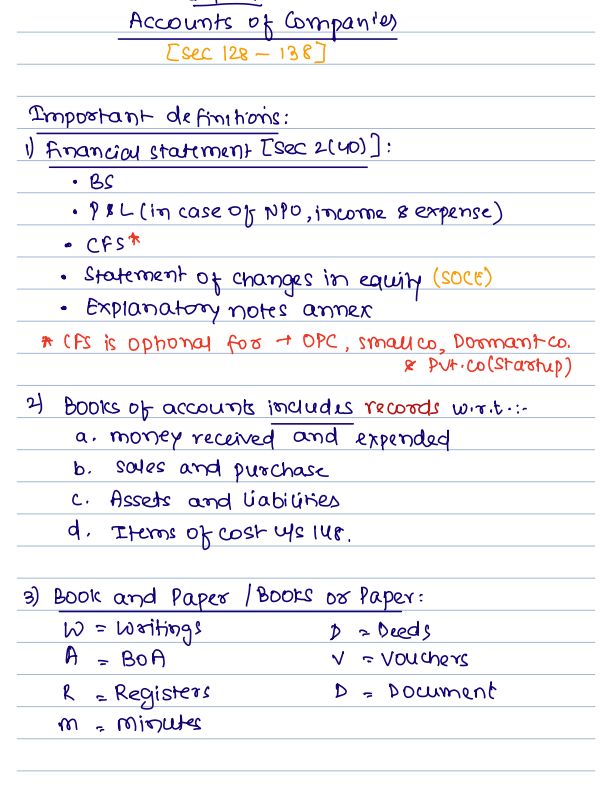 Accounts of Companies
[Sec 128 – 138]
Important definitions:
1) Financial statement [Sec 2(40)]:
• BS
• P&L (in case of NPO, income & expense)
• CFS*
• Statement of changes in equity (SOCE)
• Explanatory notes annex
* CFS is optional for → OPC, small co, Dormant co.
& Pvt. co (Startup)
2) Books of accounts includes records w.r.t.:-
a. money received and expended
b. sales and purchase
c. Assets and liabilities
d. Items of cost u/s 148.
3) Book and Paper / Books or Paper:
W = Writings D = Deeds
A = BoA V = Vouchers
R = Registers D = Document
M = Minutes